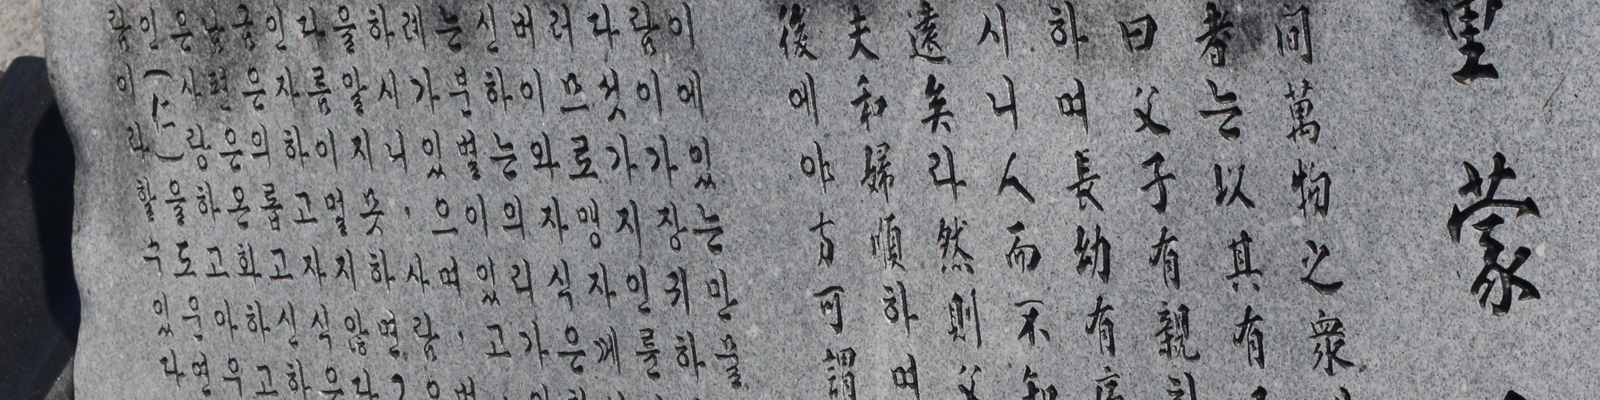 蒙
間萬物之衆
者는以其有
曰父子有親
하며長幼有序
시니人而不知
遠矣라然則父
夫和婦順하며
後에야方可謂
이에있는만물
람이가장귀하
다섯가지인를
러므로맹자께
버이와자식은
신하는의리가
는분별이있고
레가있으며,
하시니사람
을알지못하면
다름이멀지않
인자하고자식
금은의롭고신
남편은온화하고
은사랑하고아우
인(仁)
람이라할수있다